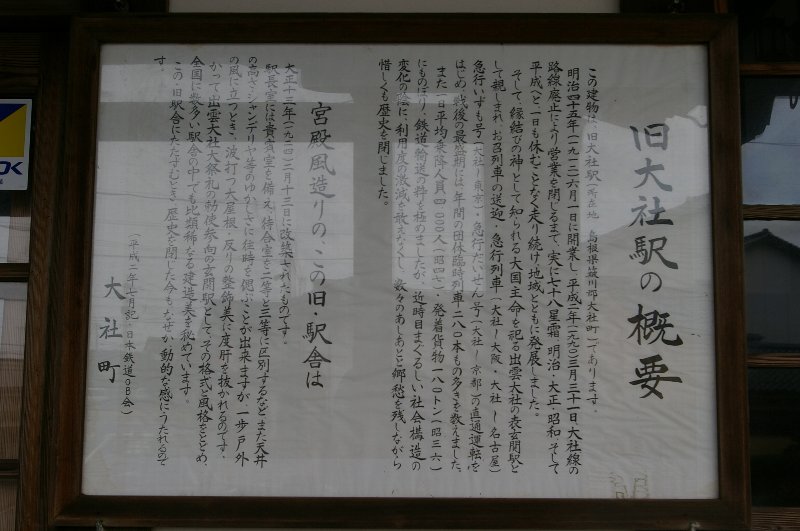 旧大社駅の概要
この建物は、旧大社駅(所在地 島根県簸川郡大社町)であります。
明治四十五年(一九一二)六月一日に開業し、平成二年(一九九〇)三月三十一日大社線の
路線廃止により営業を閉じるまで、実に七十八星霜 明治・大正・昭和 そして
平成へと一日も休むことなく走り続け地域とともに発展しました。
そして、縁結びの神として知られる大国主命を祀る出雲大社の表玄関駅と
して親しまれ、お召列車の送迎・急行列車(大社〜大阪・大社〜名古屋)
急行いずも号(大社〜東京)・急行だいせん号(大社〜京都)の直通運転を
はじめ、戦後の最盛期には、年間の団体臨時列車二八〇本もの多きを数えました。
また一日平均乗降人員四、〇〇〇人(昭四二)・発着貨物一八〇トン(昭三六)
にものぼり、鉄道輸送の粋を極めましたが、近時目まぐるしい社会構造の
変化の陰に、利用度の激減も敢えなくし、数々のあしあとと郷愁を残しながら
惜しくも歴史を閉じました。
宮殿風造りの この旧・駅舎は
大正十三年(一九二四)二月十三日に改築されたものです。
駅長室には貴賓室を備え、待合室を二等と三等に区別するなど、また天井
の高さ、シャンデリヤ等のゆかしさに往時を偲ぶことが出来ますが、一歩戸外
の風に立つとき、波打つ大屋根、反りの整飾美に度肝を抜かれるのです。
かつて出雲大社大祭礼の勅使参向の玄関駅として、その格式と風格をとどめ、
全国に数多い駅舎の中でも比類稀なる建造美を秘めています。
この旧駅舎にたたずむとき、歴史を閉じた今も、なぜか動的な感にうたれるので
す。
(平成二年 月記・日本鉄道OB会)
大社町
OK